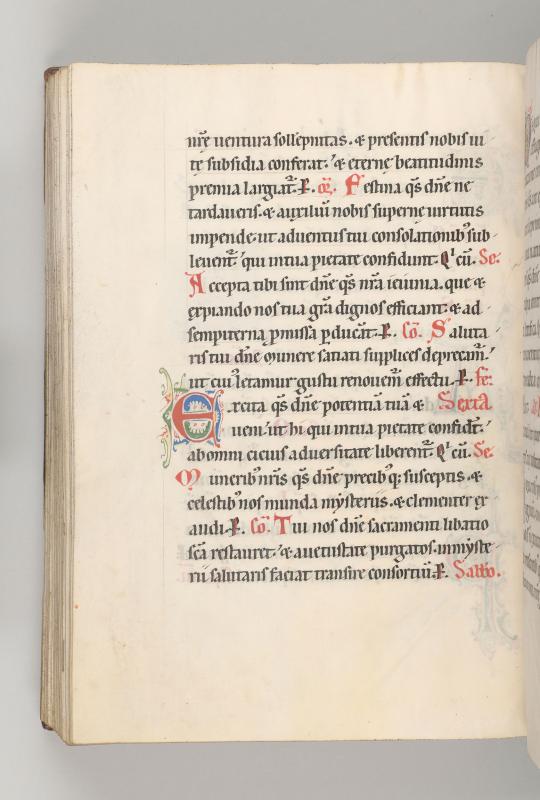 nr̃e uentura sollẽpnitas. ⁊ presentis nobis ui
te subsidia conferat. ⁊ eterne beatitudinis
premia largiat᷑. P. oĩ. Festina q̃s dñe ne
tardaueris. ⁊ auxiliũ nobis superne uirtutis
impende. ut aduentus tui consolationib; sub
leuent᷑. qui in tua pietate confidunt. Qͥ cũ. Se.
Accepta tibi sint dñe q̃s nr̃a ieiunia. que ⁊
expiando nos tua gr̃a dignos efficiant. ⁊ ad
sempiterna p̃missa p̱ducãt. P. Cõ. Saluta
ris tui dñe munere satiati supplices deprecam᷑.
ut cui᷒ letamur gustu renouem᷑ effectu. P. Fe.
Excita q̃s dñe potentiã tuã ⁊ Sexta
ueni. ut hi qui in tua pietate confidt̃.
ab omni cicius aduersitate liberent᷑. Qͥ cũ. Se.
Munerib; nr̃is q̃s dñe precib; q; susceptis. ⁊
celestib; nos munda mysteriis. ⁊ clementer ex
audi. P. Cõ. Tui nos dñe sacramenti libatio
sc̃a restauret. ⁊ a uetustate purgatos. in myste
rii salutaris faciat transire consortiũ. P. Sabbo.